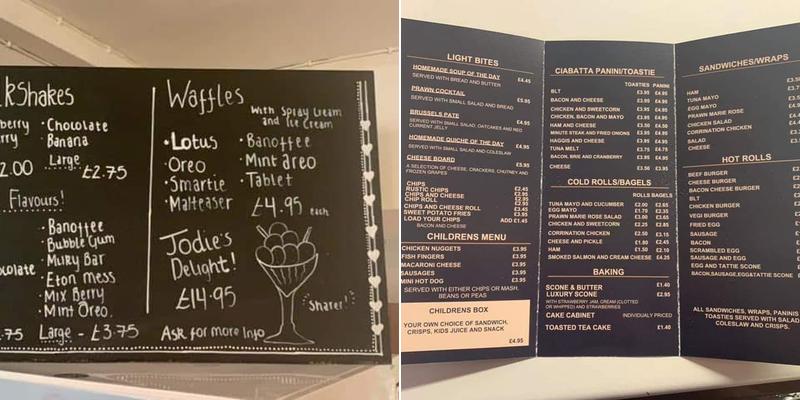 lkShakes
berry
rry
· Chocolate
· Banana
2.00
Large £2.75
Flavours!
ocolate
· Banoffee
· Bubble Gum
· Milky Bar
· Eton mess
· Mix Berry
· Mint Oreo.
.75 Large - £3.75
Waffles
With Spray Cream
and Ice Cream
· Lotus
· Oreo
· Smartie
· Malteaser
· Banoffee
· Mint areo
· Tablet
£4.95 each
Jodie's
Delight!
£14.95
Sharer!
Ask for more Info
LIGHT BITES
HOMEMADE SOUP OF THE DAY
SERVED WITH BREAD AND BUTTER £4.45
PRAWN COCKTAIL
SERVED WITH SMALL SALAD AND BREAD £5.95
BRUSSELS PATE
SERVED WITH SMALL SALAD, OATCAKES AND RED
CURRENT JELLY £4.95
HOMEMADE QUICHE OF THE DAY
SERVED WITH SMALL SALAD AND COLESLAW £4.95
CHEESE BOARD £5.95
A SELECTION OF CHEESE, CRACKERS, CHUTNEY AND
FROZEN GRAPES
CHIPS £2.45
RUSTIC CHIPS £2.95
CHIPS AND CHEESE £2.95
CHIP ROLL £2.95
CHIPS AND CHEESE ROLL £3.45
SWEET POTATO FRIES £3.95
LOAD YOUR CHIPS ADD £1.45
BACON AND CHEESE
CHILDRENS MENU
CHICKEN NUGGETS £3.95
FISH FINGERS £3.95
MACARONI CHEESE £3.95
SAUSAGES £3.95
MINI HOT DOG £3.95
SERVED WITH EITHER CHIPS OR MASH,
BEANS OR PEAS
CHILDRENS BOX
YOUR OWN CHOICE OF SANDWICH,
CRISPS, KIDS JUICE AND SNACK
£4.95
CIABATTA PANINI/TOASTIE
TOASTIES PANINI
BLT £3.95 £4.95
BACON AND CHEESE £3.95 £4.95
CHICKEN AND SWEETCORN £3.95 £4.95
CHICKEN, BACON AND MAYO £3.95 £4.95
HAM AND CHEESE £3.50 £4.50
MINUTE STEAK AND FRIED ONIONS £3.95 £4.95
HAGGIS AND CHEESE £3.95 £4.95
TUNA MELT £3.75 £4.75
BACON, BRIE AND CRANBERRY £3.95 £4.95
CHEESE £3.50 £3.95
COLD ROLLS/BAGELS
ROLLS BAGELS
TUNA MAYO AND CUCUMBER £2.00 £2.65
EGG MAYO £1.70 £2.35
PRAWN MARIE ROSE SALAD £3.00 £3.65
CHICKEN AND SWEETCORN £2.25 £2.85
CORRINATION CHICKEN £2.50 £3.15
CHEESE AND PICKLE £1.80 £2.45
HAM £1.50 £2.10
SMOKED SALMON AND CREAM CHEESE £4.25
BAKING
SCONE & BUTTER £1.40
LUXURY SCONE £2.95
WITH STRAWBERRY JAM, CREAM (CLOTTED
OR WHIPPED) AND STRAWBERRIES
CAKE CABINET INDIVIDUALLY PRICED
TOASTED TEA CAKE £1.40
SANDWICHES/WRAPS
HAM
TUNA MAYO
EGG MAYO
PRAWN MARIE ROSE
CHICKEN SALAD
CORRINATION CHICKEN
SALAD
CHEESE
HOT ROLLS
BEEF BURGER
CHEESE BURGER
BACON CHEESE BURGER
BLT
CHICKEN BURGER
VEGI BURGER
FRIED EGG
SAUSAGE
BACON
SCRAMBLED EGG
SAUSAGE AND EGG
EGG AND TATTIE SCONE
BACON,SAUSAGE,EGG&TATTIE SCONE
ALL SANDWICHES, WRAPS, PANINIS
TOASTIES SERVED WITH SALAD
COLESLAW AND CRISPS.